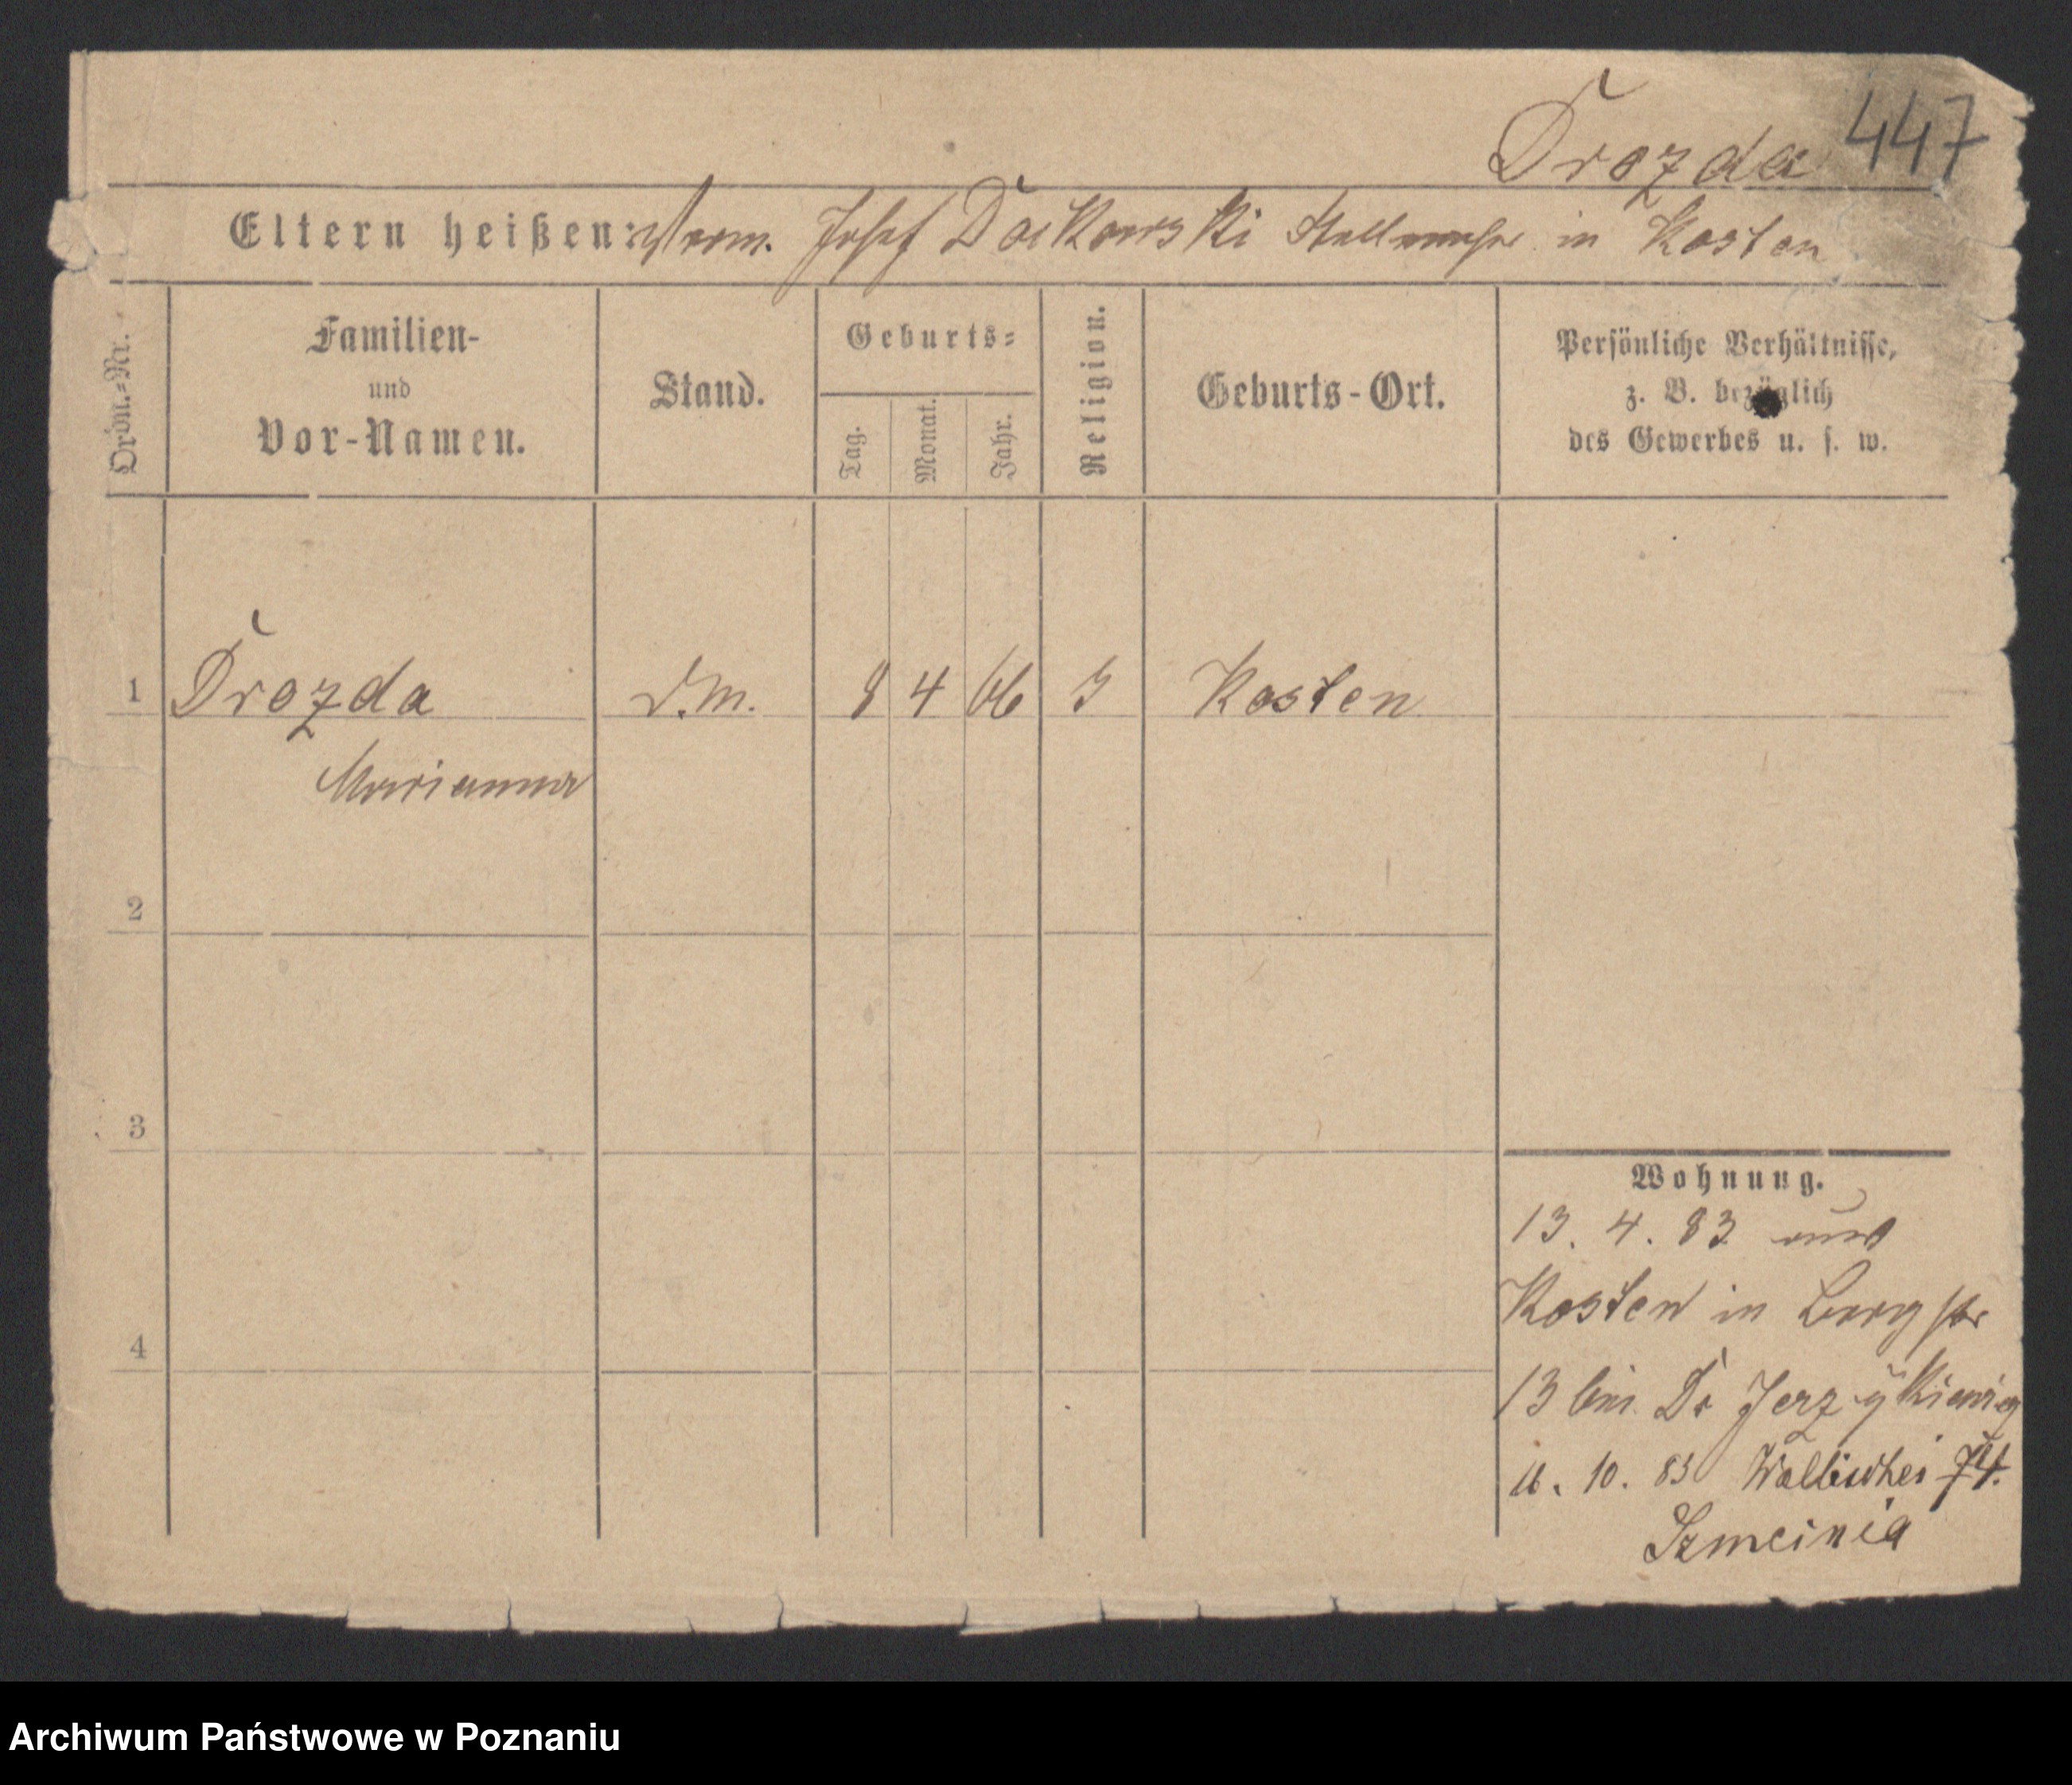 Drozda 447
Eltern heißen: Vorm. Josef Daikowski Stellmacher in Kosten
Ordn.-Nr.
Familien-
und
Vor-Namen.
Stand.
Geburts-
Tag.
Monat.
Jahr.
Religion.
Geburts-Ort.
Persönliche Verhältnisse,
z. B. bezüglich
des Gewerbes u. s. w.
1 Drozda D.M. 8 4 66 Kosten
Marianna
2
3
4
Wohnung.
13. 4. 83 aus
Kosten in Bergstr
13 bei Dr Jerzykiewicz
10. 83 Wallischei 74.
Archiwum Państwowe w Poznaniu